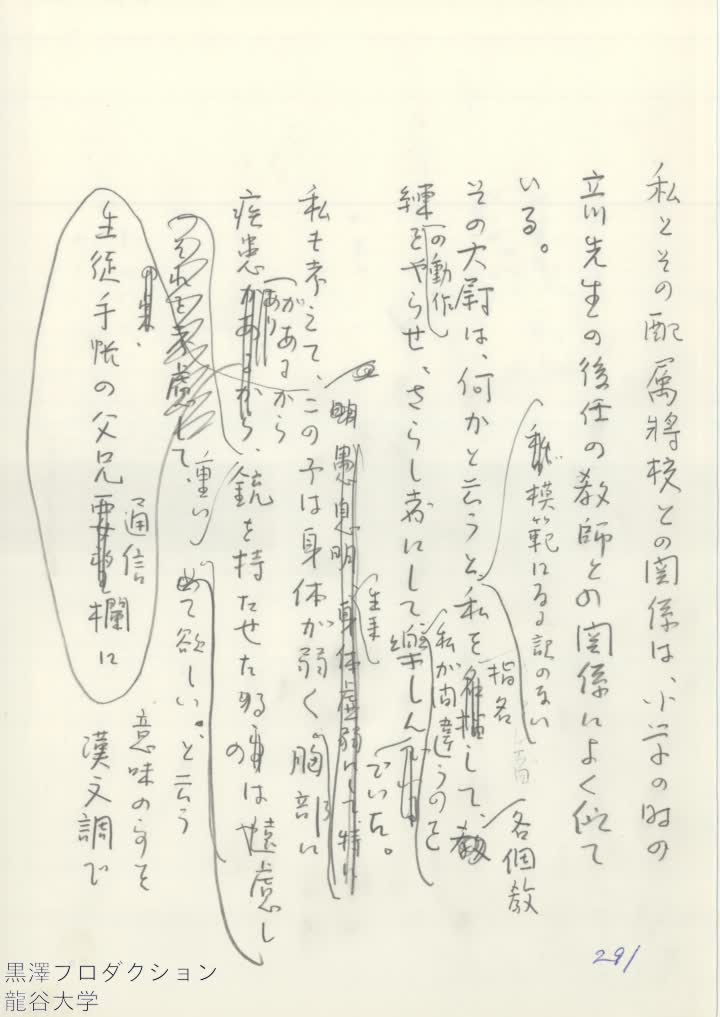 私とその配属将校との関係は、小学の時の
立川先生の後任の教師との関係によく似て
いる。
模範になる訳のない
各個教
その大尉は、何かと云うと、私を
指名
して、
私が間違うのを
練をやらせ、さらし者にして楽しん
の動作
でいた。
愚息明
生来
身体虚弱にして、特に
私も考えて、この子は身体が弱く、胸部に
疾患があるから、銃を持たせた
のは遠慮し
がある
から
あり
重い
それを考慮して、
めて欲しい、と云う
意味の事を
生徒手帳の父兄
通信
欄に
漢文調で
291
黒澤プロダクション
龍谷大学